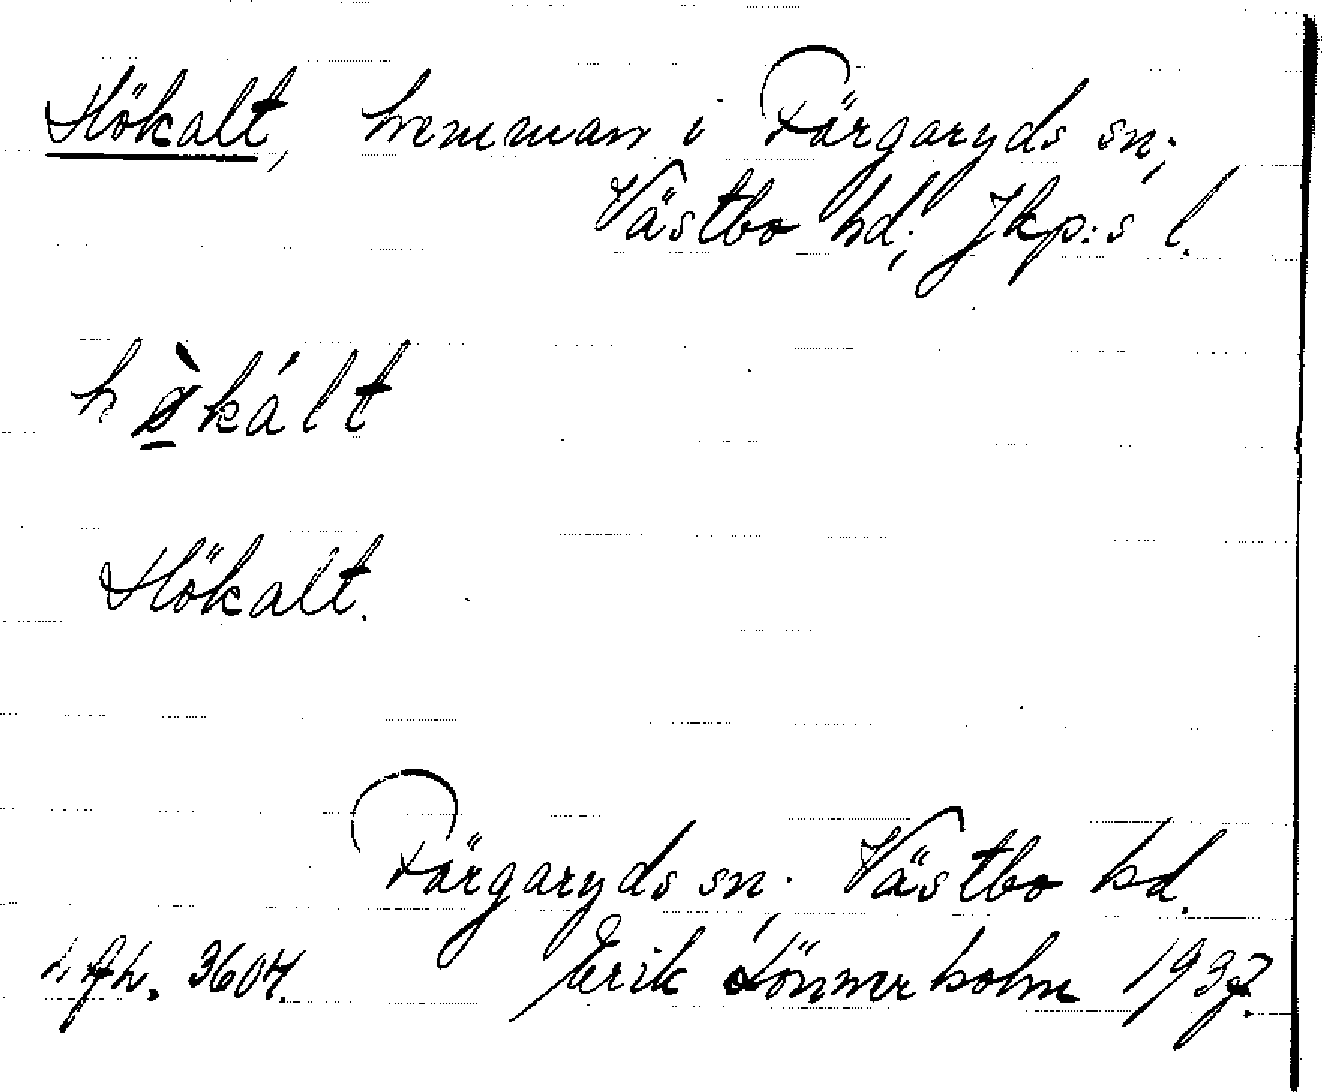 Hökalt, hemman i Färgaryds sn;
Västbo hd; Jkp:s l.
Hökalt.
Färgaryds sn. Västbo hd.
3604. Erik Lönnerholm 1937.